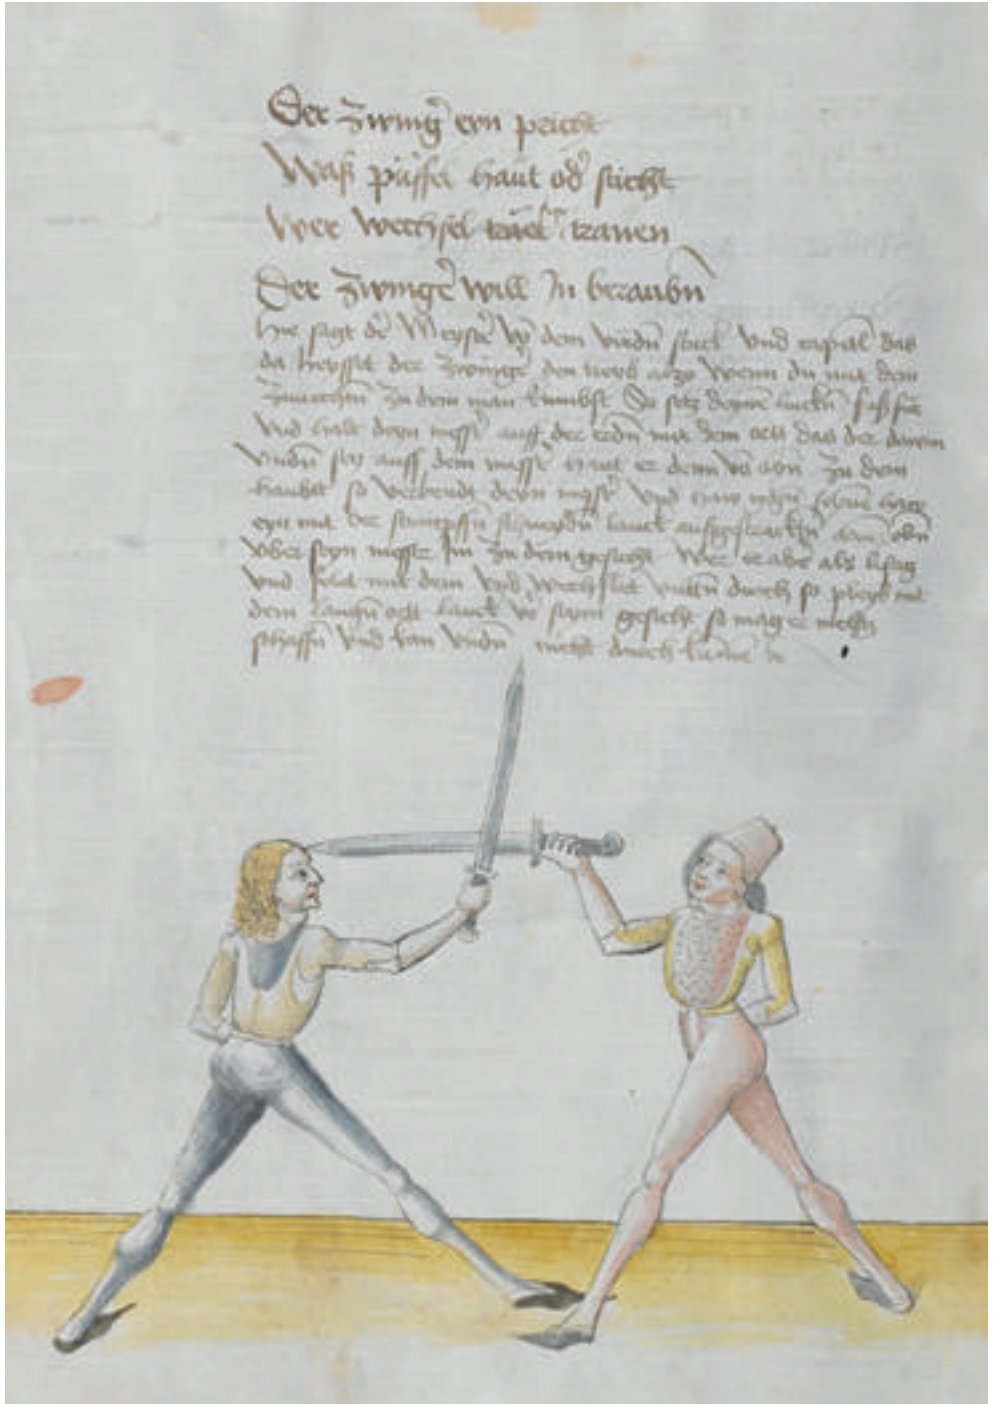 Der Zwinger eyn pricht
Was püffel haut oder sticht
Wer wechsel trauen
Der Zwinger will In berauben
hie sagt der Meyster von dem vierden stuck vnd capitel das
da heysset der zwinger den treib also Wenn du mit dem
zufechten zu dem man kumbst So setz deynen lincken fuß für
Vnd halt deyn messer auff der erden mit dem ort das der daum
Vnden sey auff dem messer Haut er denn von oben zu dem
haubt so verwendt deyn messer Vnd haw
eyn mit der stumpffen schneyden lanck auffgestrackten armen oben
vber seyn messer Im zu dem gesicht Wer er aber als listig
Vnd felet mit dem Vnd wechslet vnden durch so pleyb mit
dem langen ort lanck vor seym gesicht so mag er nichts
schaffen Vnd kan Vnden nicht durch kumen